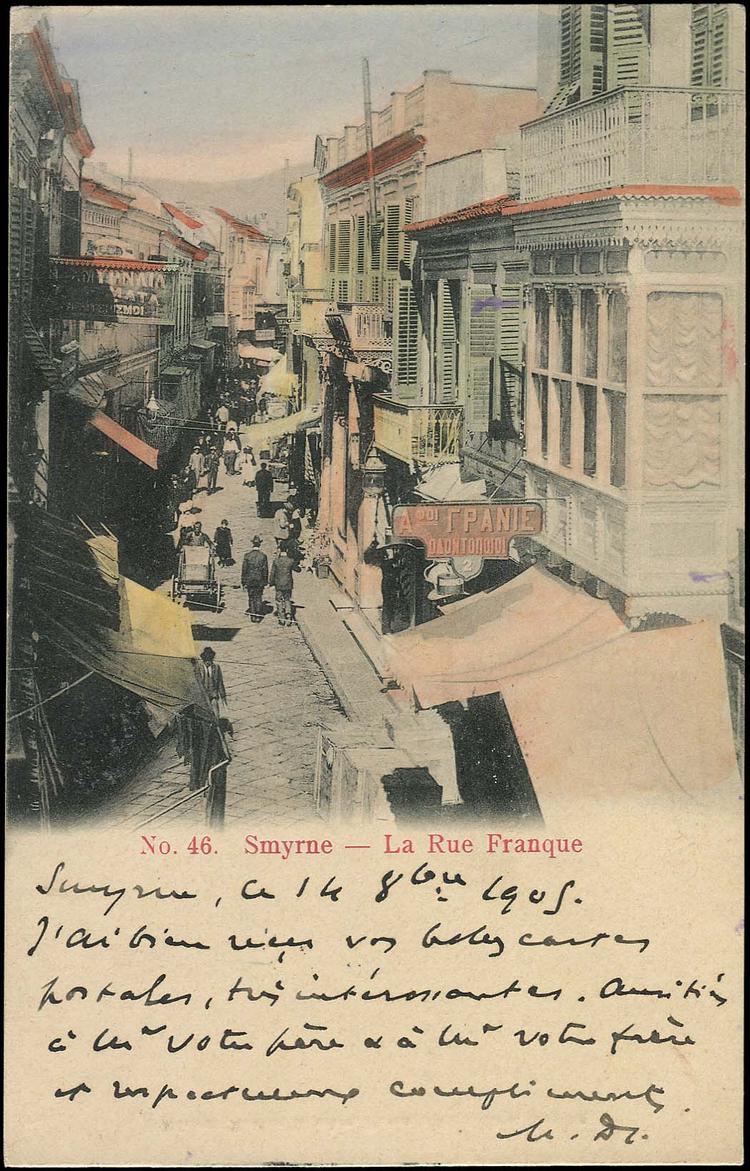 ΑΦΟΙ ΓΡΑΝΙΕ
ΟΔΟΝΤΟΠΟΙΟΙ
2
No. 46. Smyrne — La Rue Franque
Smyrne, ce 14 8bre 1905.
J'ai bien reçu vos belles cartes
postales, très intéressantes. Amitiés
à Mr votre père & à Mr votre frère
et respectueux compliments.
M. Dr.